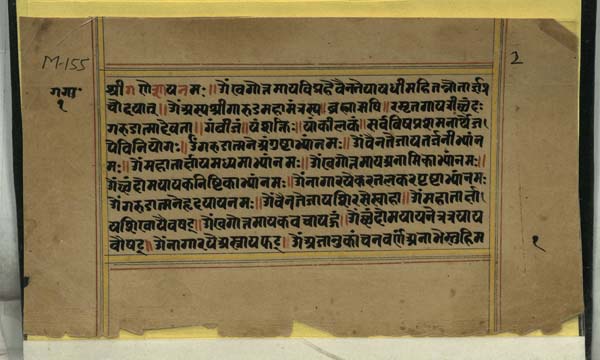 M-155
2
गगा
१
श्रीगणेशायनमः॥ॐखगोत्तमायविद्महेवैनतेयायधीमहितन्नोतार्क्ष्यप्र
चोदयात्॥ॐअस्यश्रीगारुडमहामंत्रस्य॥ब्रह्माऋषिः॥
गरुडात्मादेवता॥ॐबीजं॥यंशक्तिः॥यःकीलकं॥सर्वविषप्रशमनार्थेज
पेविनियोगः॥ॐगरुडात्मनेअंगुष्टाभ्यांनमः॥ॐवैनतेयायतर्जनीभ्यांन
मः॥ॐमहातार्क्ष्यायमध्यमाभ्यांनमः॥ॐखगोत्तमायअनामिकाभ्यांनमः॥
कनिष्टिकाभ्यांनमः॥ॐनागारयेकरतलकरपृष्टाभ्यांनमः
ॐगरुडात्मनेहृदयायनमः॥ॐवैनतेयायशिरसेस्वाहा॥ॐमहातार्क्ष्या
यशिखायैवषट्॥ॐखगोत्तमायकवचायहुं॥नेत्रत्रयाय
वौषट्॥ॐनागारयेअस्त्रायफट्॥ॐआजानुकांचनवर्णंआनाभेस्तुहिम
१